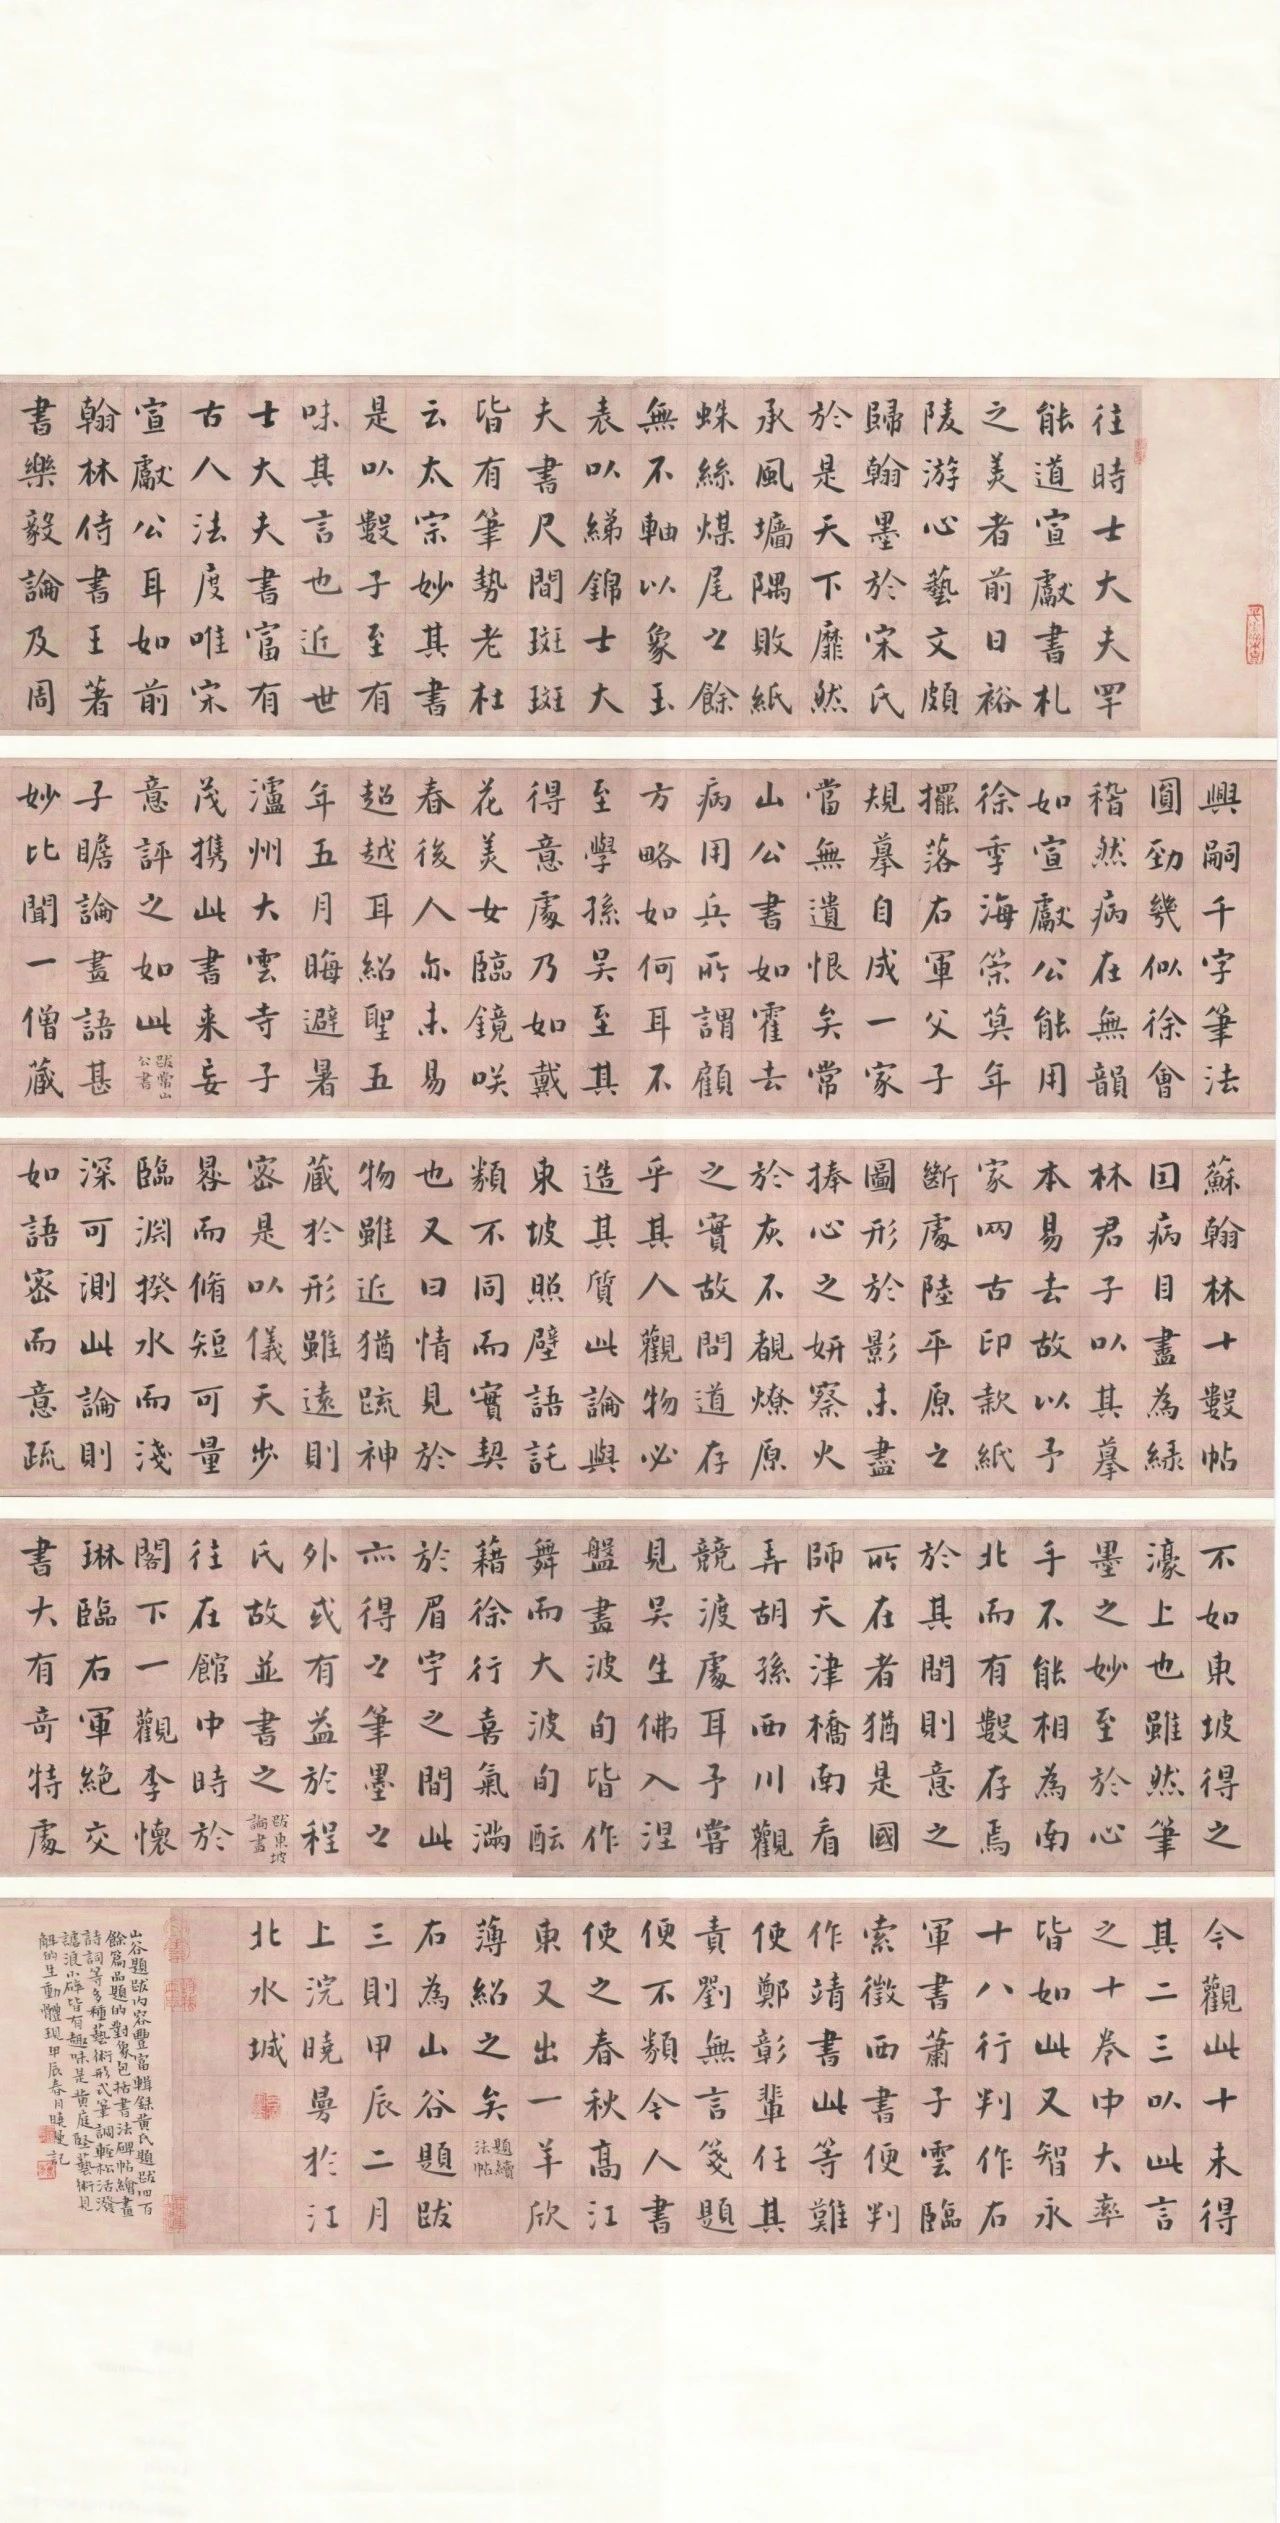 往時士大夫罕
能道宣獻書札
之美者前日裕
陵游心藝文頗
歸翰墨於宋氏
於是天下靡然
承風墻隅敗紙
蛛絲煤尾之餘
無不軸以象玉
表以綈錦士大
夫書尺間斑斑
皆有筆勢老杜
云太宗妙其書
是以數子至有
味其言也近世
士大夫書富有
古人法度唯宋
宣獻公耳如前
翰林侍書王著
書樂毅論及周
興嗣千字筆法
圓勁幾似徐會
稽然病在無韻
如宣獻公能用
徐季海策莫年
擺落右軍父子
規摹自成一家
當無遺恨矣常
山公書如霍去
病用兵所謂顧
方略如何耳不
至學孫吳至其
得意處乃如戴
花美女臨鏡咲
春後人亦未易
超越耳紹聖五
年五月晦避暑
瀘州大雲寺子
茂携此書来妄
意評之如此跋常山公書
子瞻論畫語甚
妙比聞一僧藏
蘇翰林十數帖
因病目盡為綠
林君子以其摹
本易去故以予
家兩古印款紙
斷處陸平原之
圖形於影未盡
捧心之妍察火
於灰不覩燎原
之實故問道存
乎其人觀物必
造其質此論與
東坡照壁語託
類不同而實契
也又曰情見於
物雖近猶疏神
藏於形雖遠則
密是以儀天步
晷而脩短可量
臨淵揆水而淺
深可測此論則
如語密而意疏
不如東坡得之
濠上也雖然筆
墨之妙至於心
手不能相為南
北而有數存焉
於其間則意之
所在者猶是國
師天津橋南看
弄胡孫西川觀
競渡處耳予嘗
見吳生佛入涅
盤畫波旬皆作
舞而大波旬醖
藉徐行喜氣滿
於眉宇之間此
亦得之筆墨之
外或有益於程
氏故並書之跋東坡論書
往在館中時於
閣下一觀李懷
琳臨右軍絕交
書大有奇特處
今觀此十未得
其二三以此言
之十卷中大率
皆如此又智永
十八行判作右
軍書蕭子雲臨
索徵西書便判
作靖書此等難
使鄭彰輩任其
責劉無言箋題
便不類今人書
便之春秋高江
東又出一羊欣
薄紹之矣題續法帖
右為山谷題跋
三則甲辰二月
上浣曉曼於江
北水城
山谷題跋內容豐富輯錄黃氏題跋四百
餘篇品題的對象包括書法碑帖繪畫
詩詞等多種藝術形式筆調輕松活潑
諧浪小辭皆有趣味是黃庭堅藝術見
解的生動體現甲辰春月曉曼記